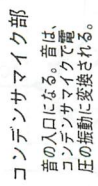 コンデンサマイク部
音の入口になる。音は、
コンデンサマイクで電
圧の振動に変換される。